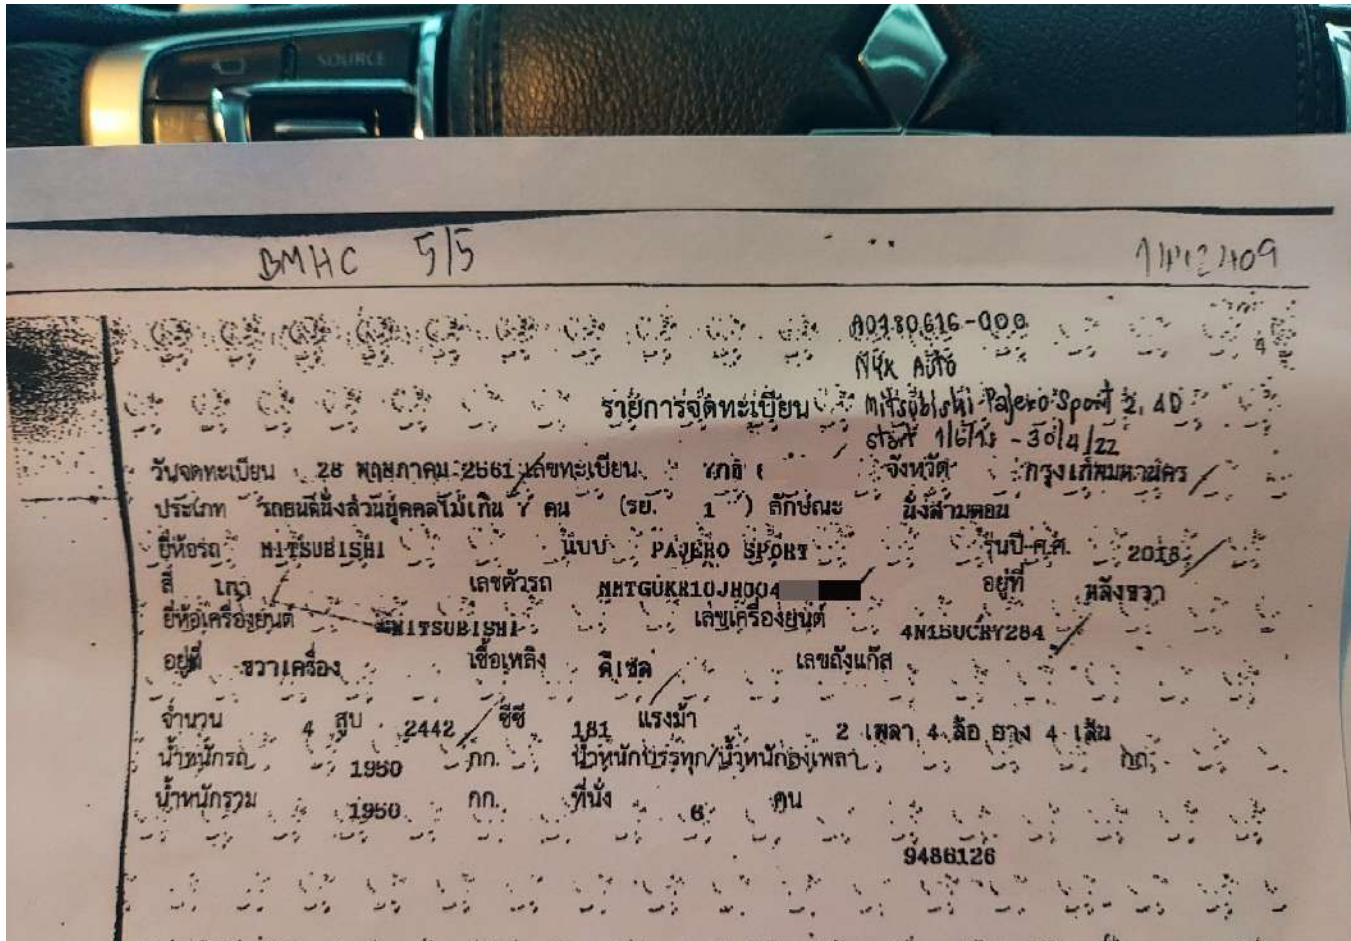 SOURCE
BMHC 5/5
A0780616-000
Nyx Auto
รายการจดทะเบียน Mitsubishi Pajero Sport 2.4D
start 1/6/18 - 30/4/22
วันจดทะเบียน 28 พฤษภาคม 2561 เลขทะเบียน จังหวัด กรุงเทพมหานคร
ประเภท รถยนต์นั่งส่วนบุคคลไม่เกิน 7 คน (รย. 1 ) ลักษณะ นั่งสามตอน
ยี่ห้อรถ MITSUBISHI แบบ PAJERO SPORT รุ่นปี ค.ศ. 2018
สี เทา เลขตัวรถ อยู่ที่ หลังขวา
ยี่ห้อเครื่องยนต์ MITSUBISHI เลขเครื่องยนต์ 4N15UCHY284
อยู่ที่ ขวาเครื่อง เชื้อเพลิง ดีเซล เลขถังแก๊ส
จำนวน 4 สูบ 2442 ซีซี 181 แรงม้า 2 เพลา 4 ล้อ ยาง 4 เส้น
น้ำหนักรถ 1950 กก. น้ำหนักบรรทุก/น้ำหนักลงเพลา กก.
น้ำหนักรวม 1950 กก. ที่นั่ง 6 คน
9486126